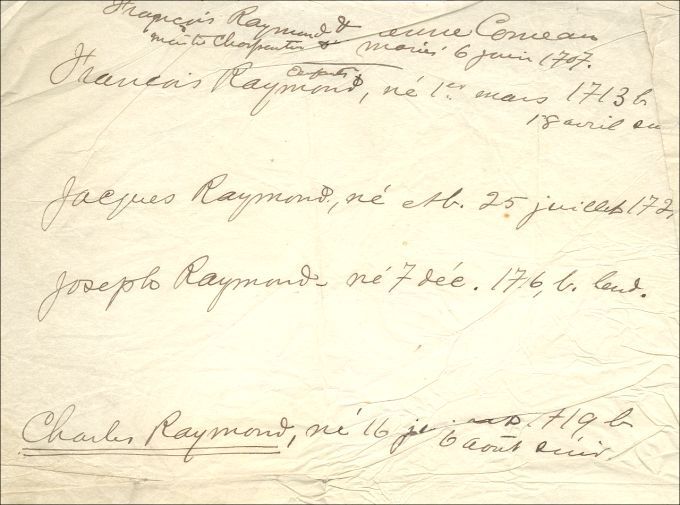 François Raymond & Anne Comeau
maître Charpentier mariés 6 juin 1707.
François Raymond, né 1er mars 1713 b
18 avril su
Jacques Raymond, né et b. 25 juillet 172
Joseph Raymond né 7 déc. 176, b. lend.
Charles Raymond, né 16 1719 b
6 août suiv.